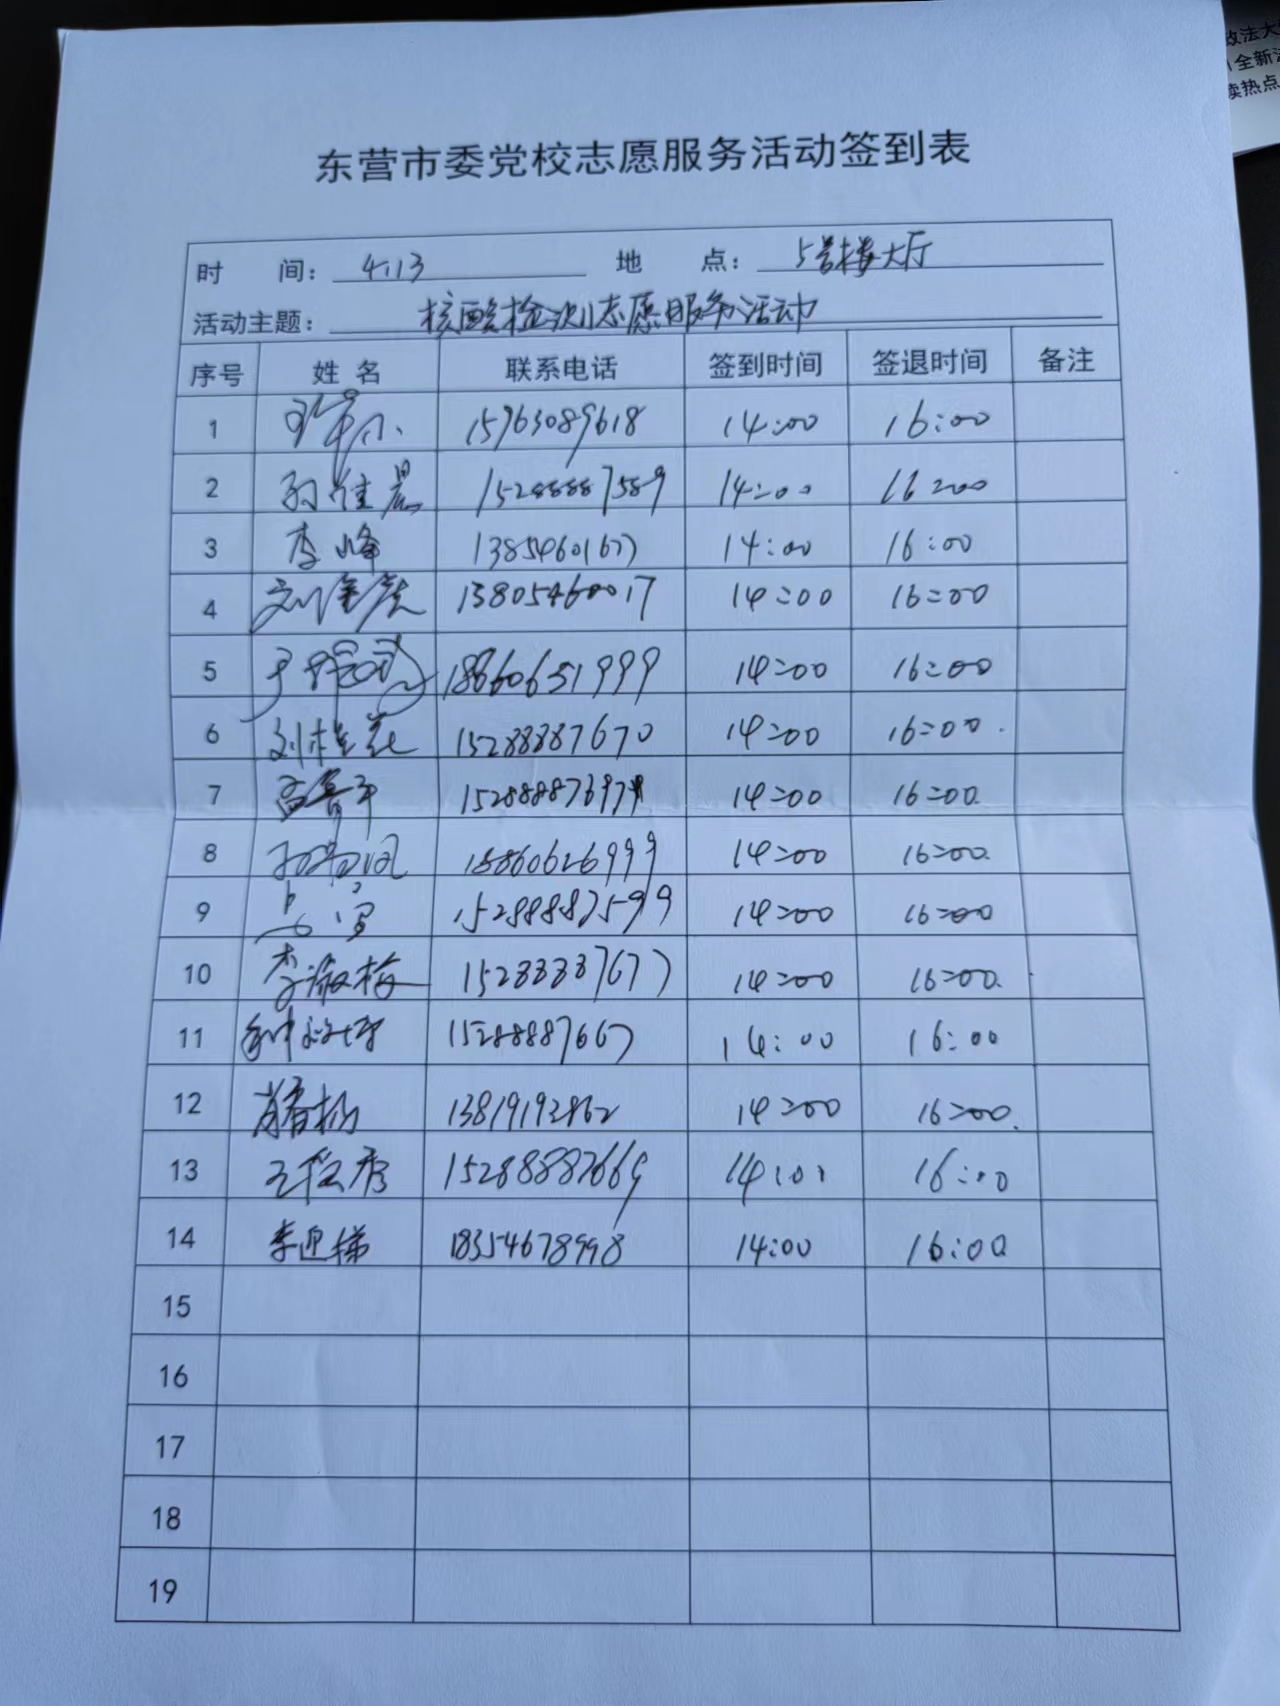 东营市委党校志愿服务活动签到表
时 间: 4.13 地 点: 5号楼大厅
活动主题: 核酸检测志愿服务活动
序号 姓名 联系电话 签到时间 签退时间 备注
1 15963089618 14:00 16:00
2 孙佳晨 15288887589 14:00 16:00
3 李峰 13854601677 14:00 16:00
4 13805460017 14:00 16:00
5 18860651999 14:00 16:00
6 刘桂花 15288887670 14:00 16:00
7 孟春平 14:00 16:00
8 14:00 16:00
9 15288887599 14:00 16:00
10 李淑梅 15288887677 14:00 16:00
11 15288887667 14:00 16:00
12 肖春杨 13819192862 14:00 16:00
13 王松秀 15288887669 14:00 16:00
14 李迎梯 18354678998 14:00 16:00
15
16
17
18
19
政法大
全新
读热点